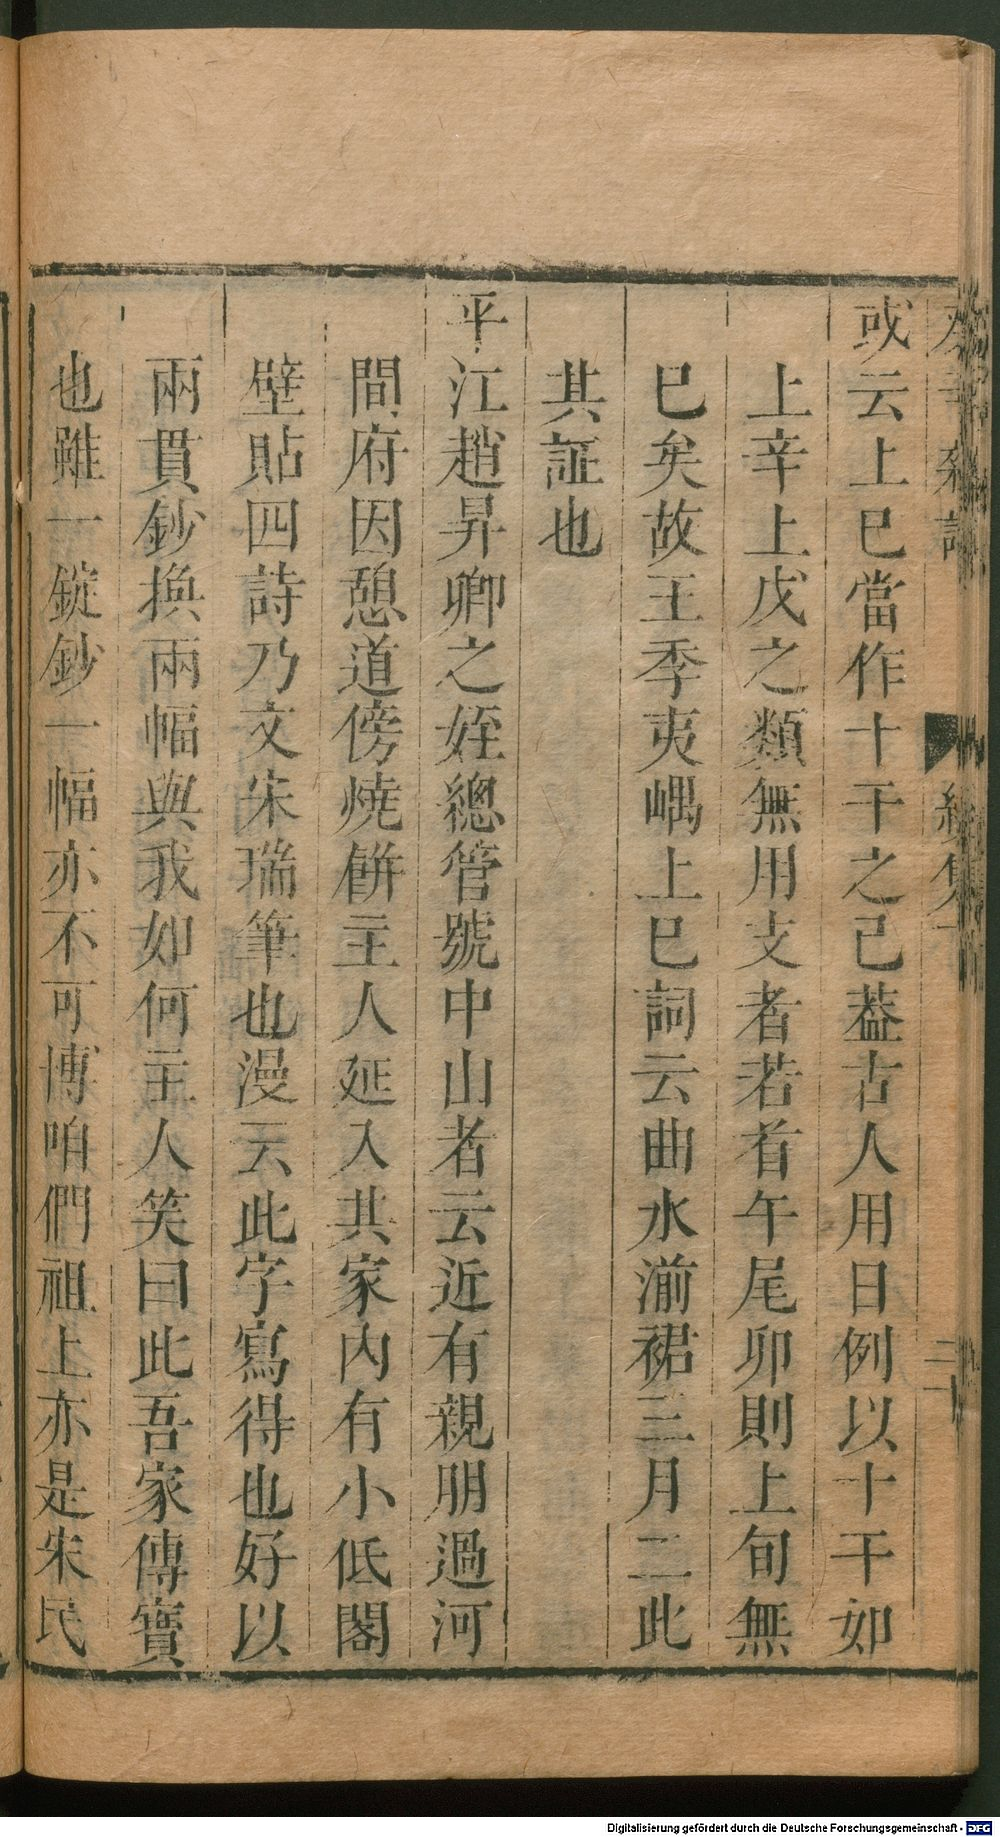 癸辛雜識 續集下 二十
或云上巳當作十干之己葢古人用日例以十干如
上辛上戊之類無用支者若首午尾卯則上旬無
巳矣故王季夷嵎上巳詞云曲水湔裙三月二此
其証也
平江趙昇卿之姪總管號中山者云近有親朋過河
間府因憩道傍燒餅主人延入其家內有小低閣
壁貼四詩乃文宋瑞筆也漫云此字寫得也好以
兩貫鈔換兩幅與我如何主人笑曰此吾家傳寶
也雖一錠鈔一幅亦不可博咱們祖上亦是宋民
Digitalisierung gefördert durch die Deutsche Forschungsgemeinschaft - DFG